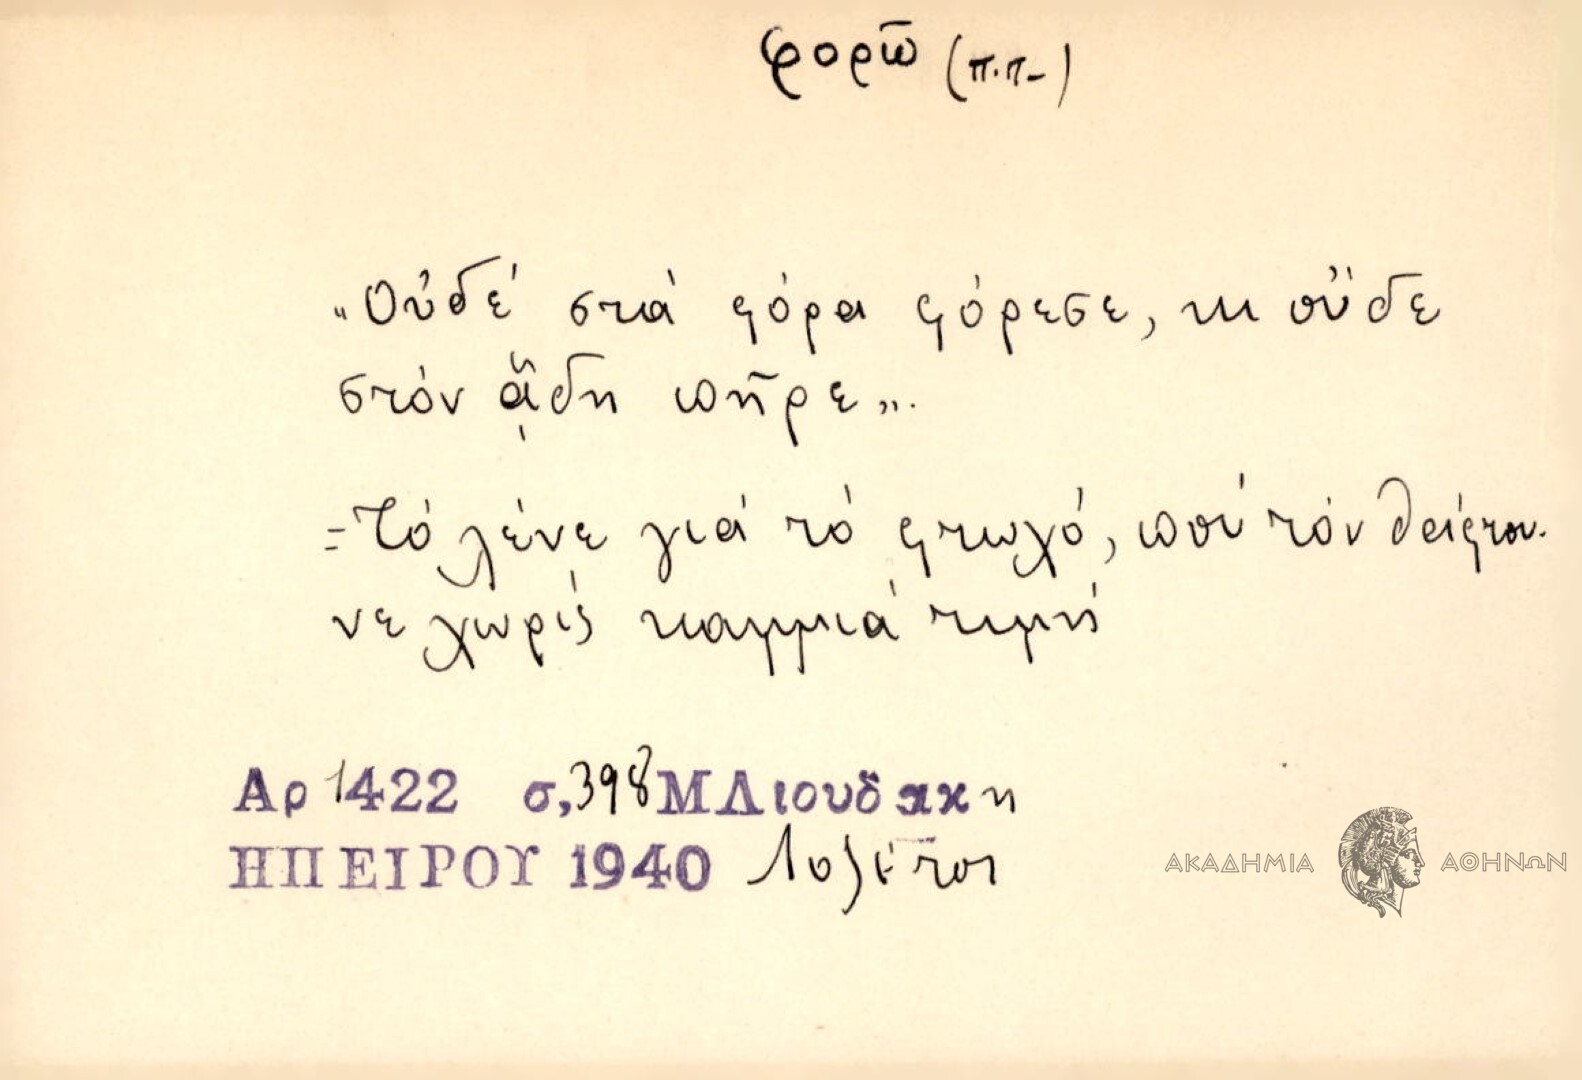 φορῶ (π.π.)
„Οὐδέ στά φόρα φόρεσε, κι οὔδε
στόν ᾅδη πῆρε„.
=Τό λένε γιά τό φτωχό, πού τόν θάφτου-
νε χωρίς καμμιά τιμή
Αρ 1422 σ, 398 Μ Λιουδακη
ΗΠΕΙΡΟΥ 1940
ΑΚΑΔΗΜΙΑ ΑΘΗΝΩΝ